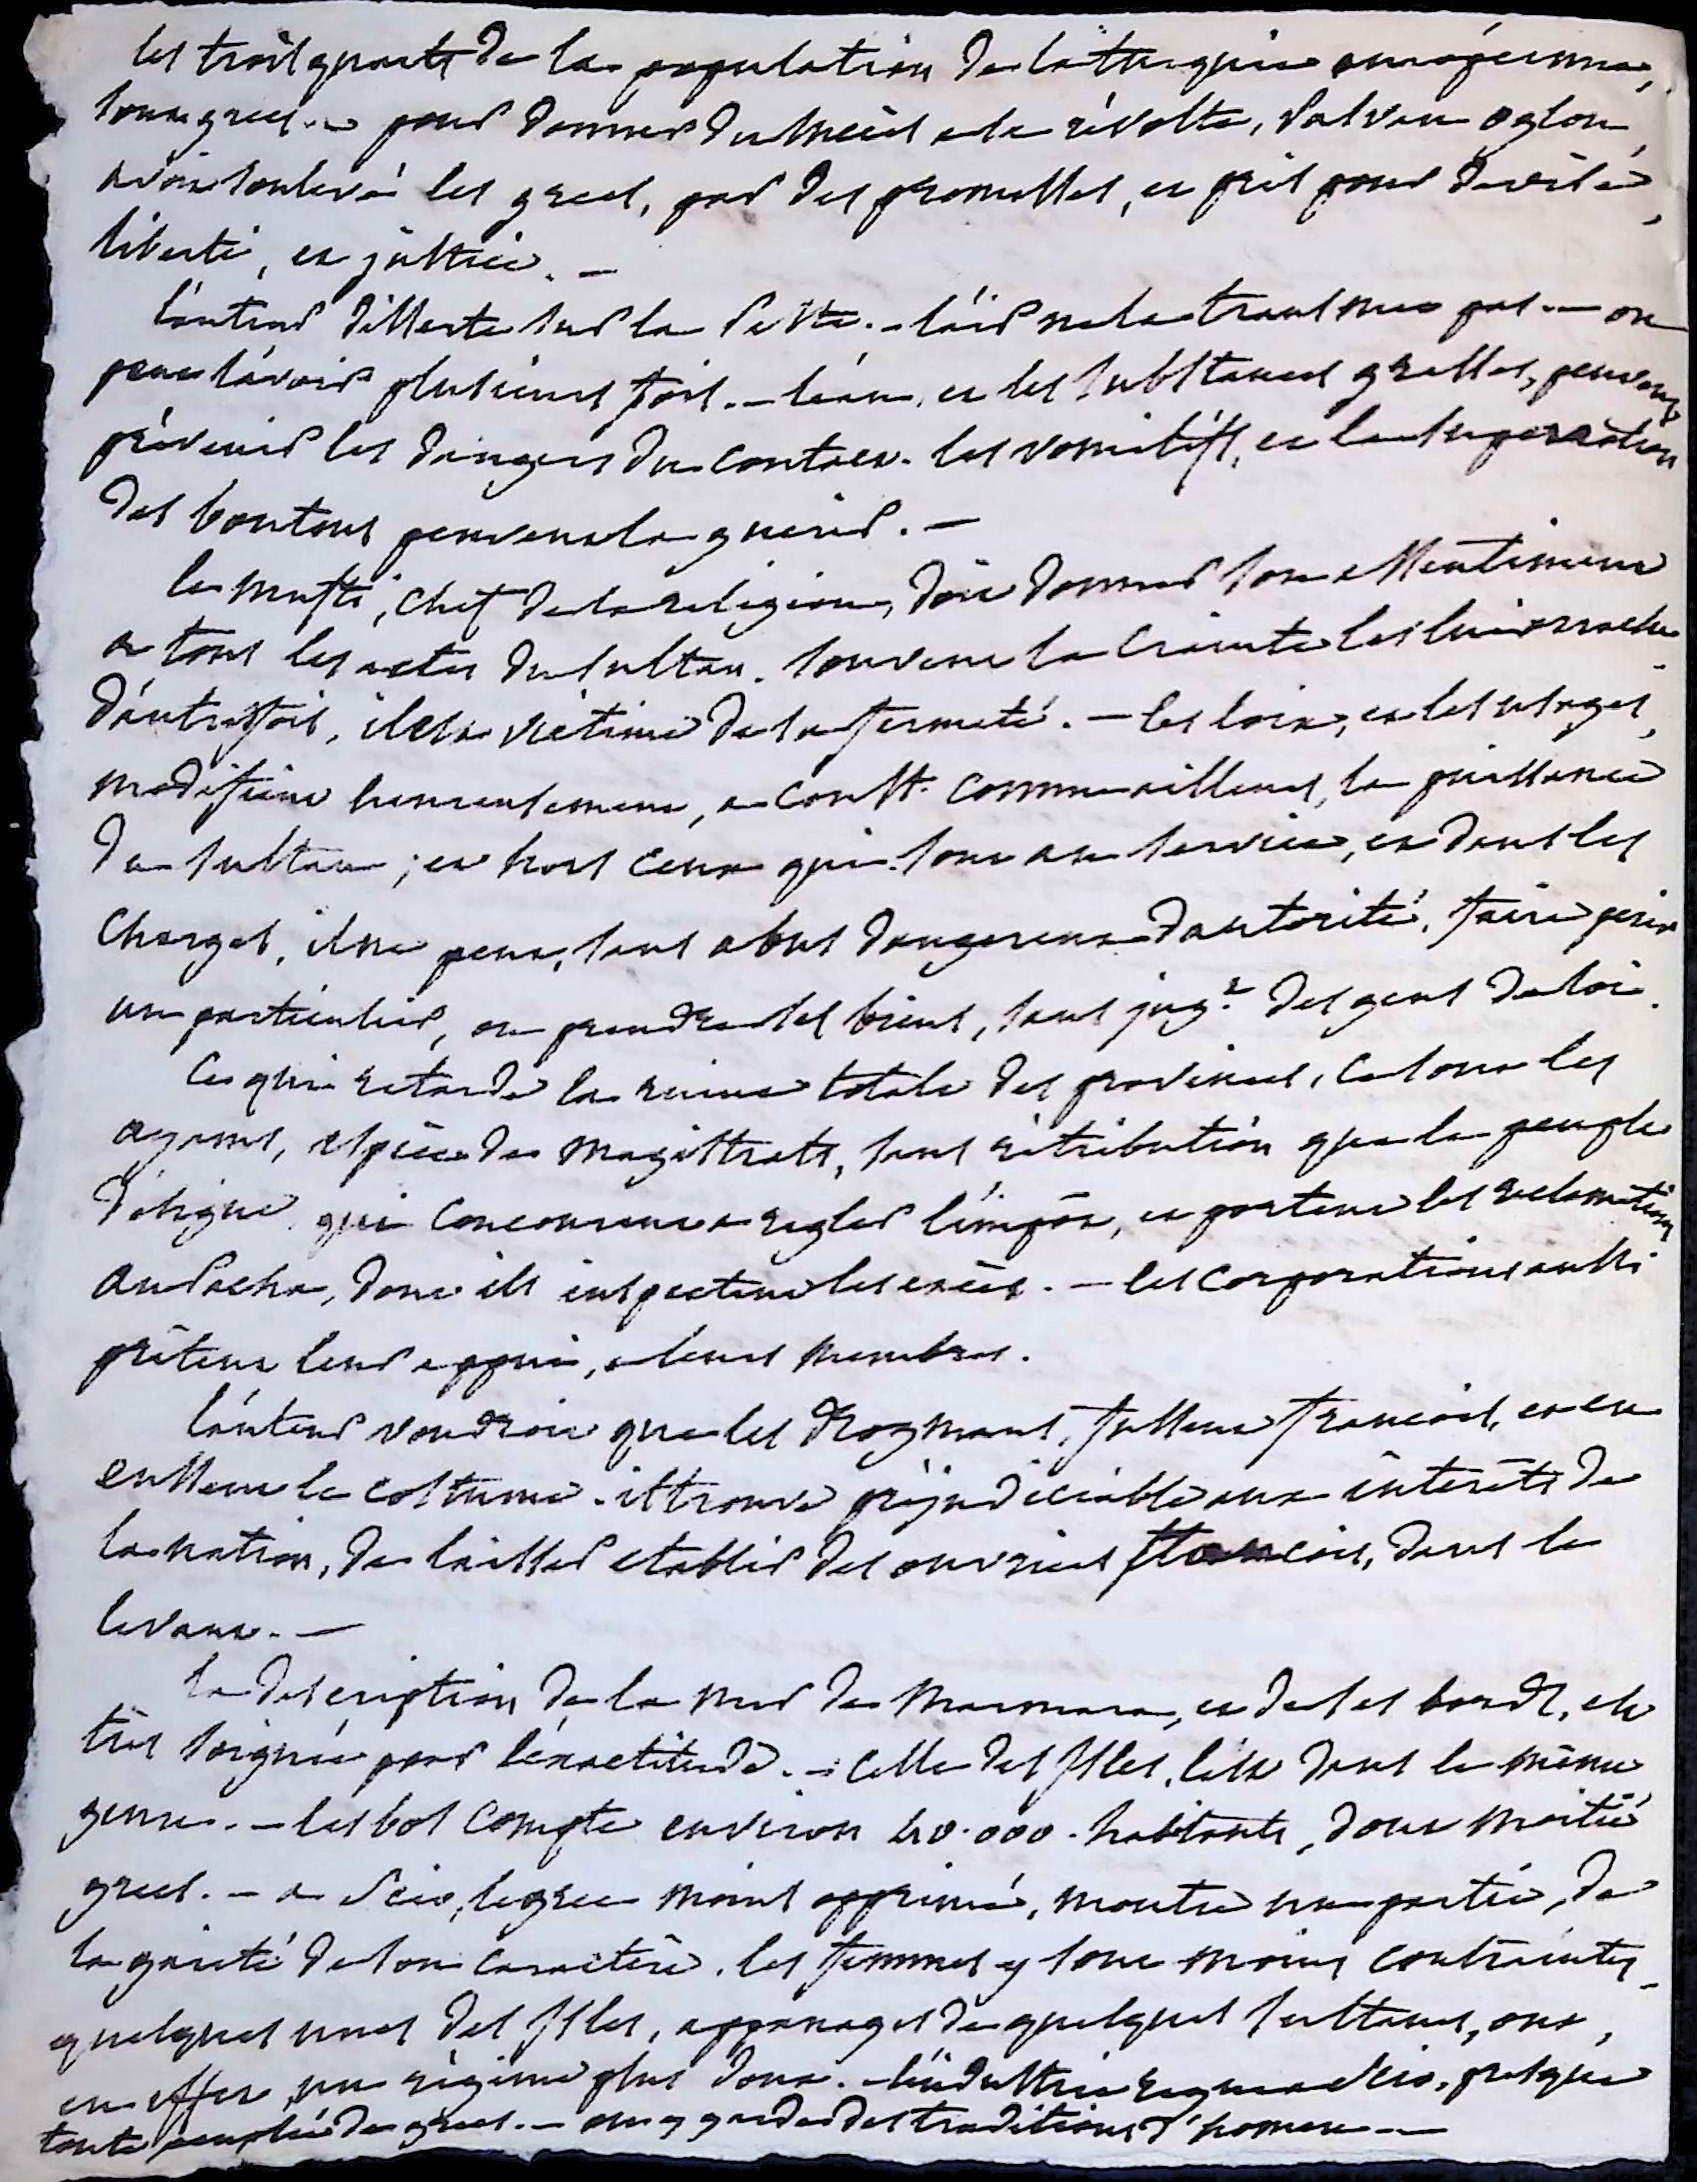 les trois quarts de la population de la turquie européenne,
sont grecs. — pour donner du succès a la révolte, Passvan oglou,
avoit soulevé les grecs, par des promesses, et pris pour devise,
liberté, et justice. —
l'auteur disserte sur la peste. — l'air ne la transmet pas. — on
peut l'avoir plusieurs fois. — l'eau, et les substances grasses, peuvent
prévenir les dangers du contact. les vomitifs, et la suppuration
des boutons peuvent la guérir. —
le mufti, chef de la religion, doit donner son assentiment
a tous les actes du sultan. souvent la crainte les lui arrache.
d'autres fois, il est victime de sa fermeté. — les loix, et les usages,
modifient heureusement, a Const. comme ailleurs, la puissance
du sultan ; et hors ceux qui sont au service, et dans les
charges, il ne peut, sans abus dangereux d'autorité, faire périr
un particulier, ou prendre ses biens, sans jugt. des gens de loi.
Ce qui retarde la ruine totale des provinces, ce sont les
ayams, espèce de magistrats, sans rétribution que le peuple
désigne, qui concourent a regler l'impôt, et portent les reclamations
au Pacha, dont ils inspectent les excès. — les corporations aussi
prêtent leur appui, a leurs membres.
l'auteur voudroit que les drogmans, fussent françois, et en
eussent le costume. il trouve préjudiciable aux intérêts de
la nation, de laisser etablir des ouvriers françois, dans le
levant. —
la description de la mer de Marmara, et de ses bords, est
très soignée pour l'exactitude. — celle des Isles, l'est dans le même
genre. — lesbos compte environ 40.000. habitants, dont moitié
grecs. — a Scio, le grec moins opprimé, montre une partie, de
la gaieté de son caractère. les femmes y sont moins contraintes.
quelques unes des Isles, appanages de quelques sultanes, ont,
en effet, un régime plus doux. — l'industrie regne a Scio, presque
toute peuplée de grecs. — on y garde des traditions d'homere. —